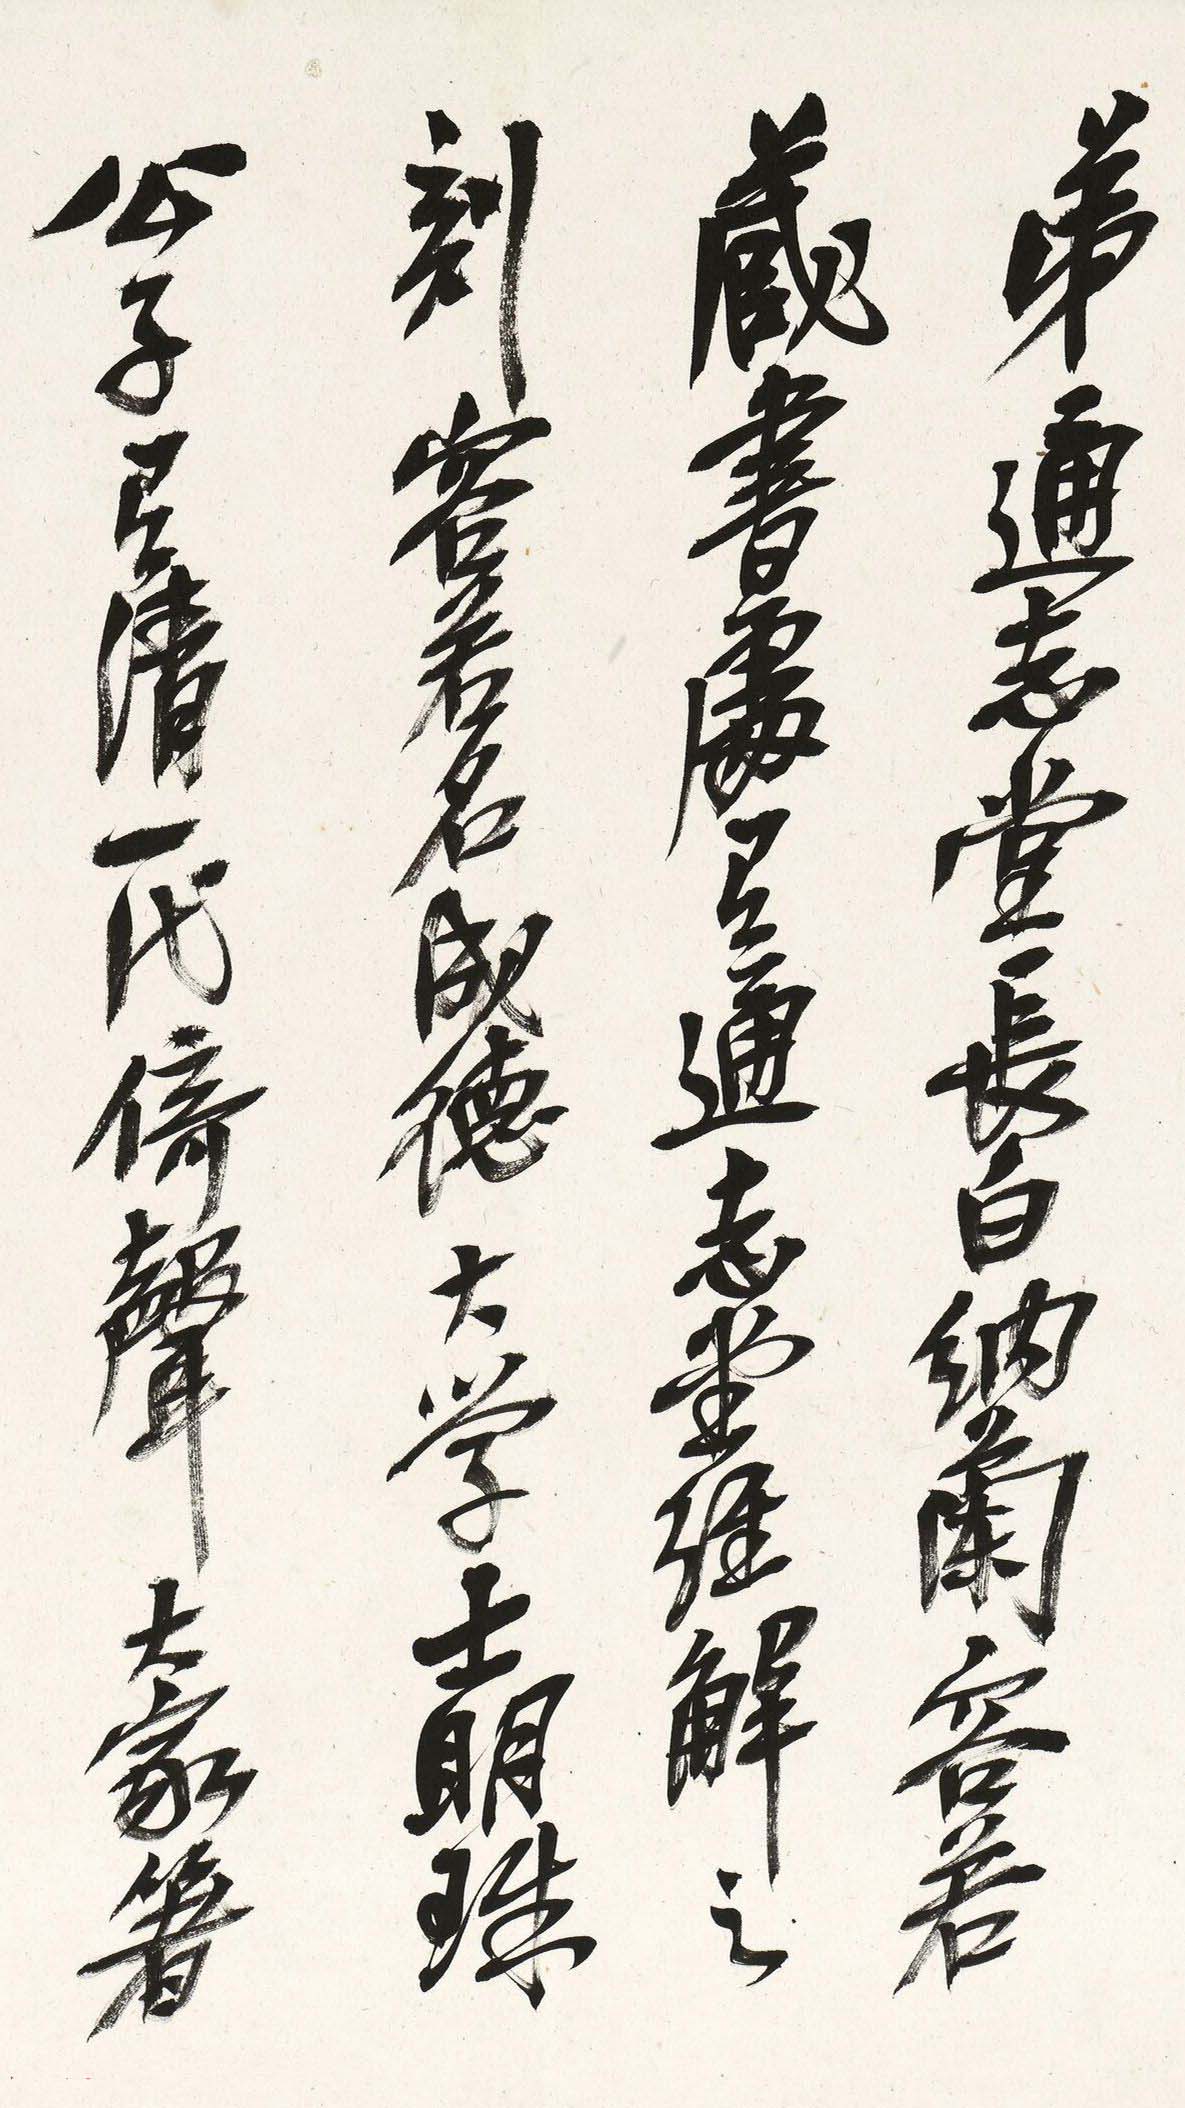 弟通志堂長白納蘭容若
藏書處有通志堂經解之
刻容若名成德大学士明珠
公子有清一代倚聲大家著